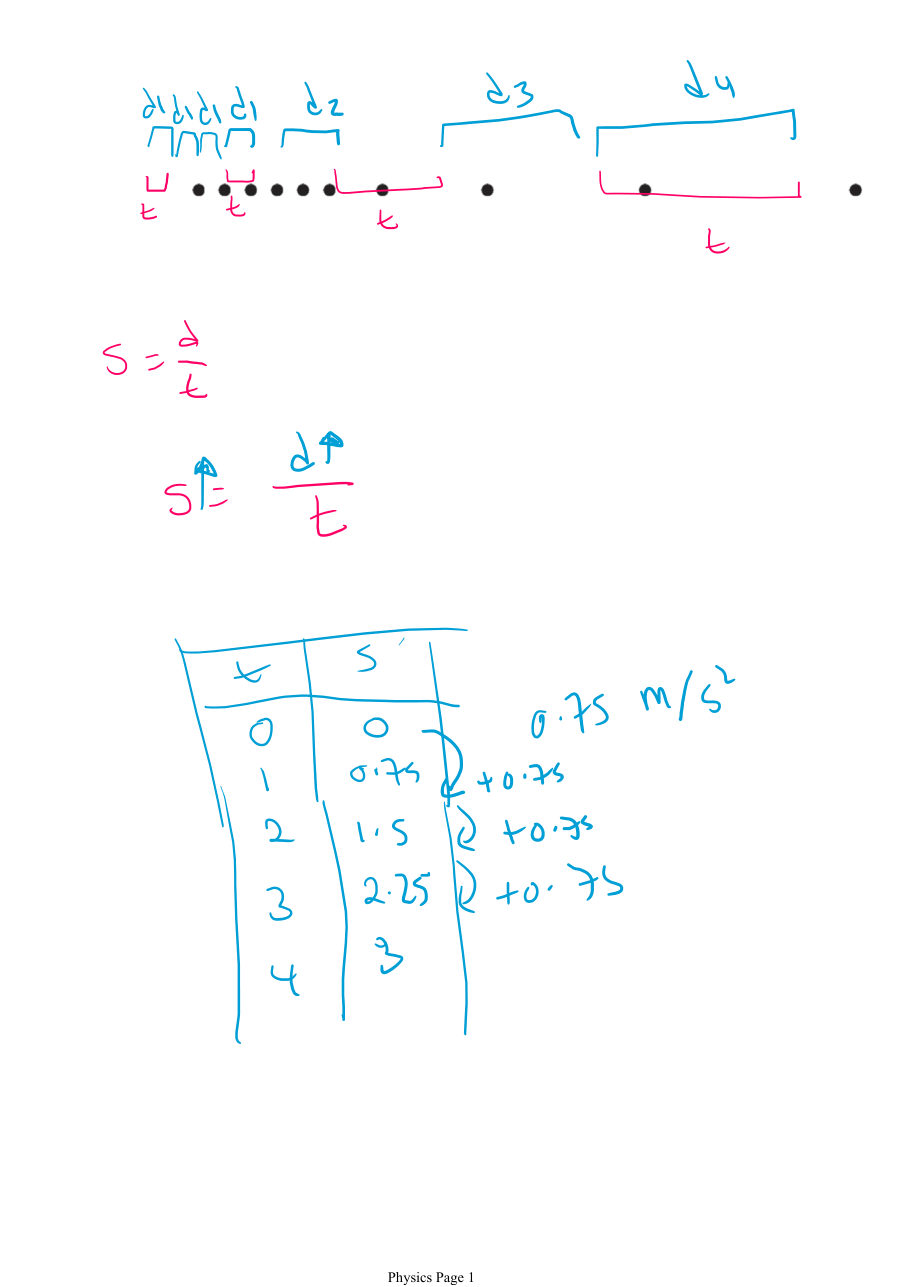 d1 d1 d1 d1 d2 d3 d4
t t t t
s = d/t
s↑ = d↑/t
t s
0 0 0.75 m/s²
1 0.75 +0.75
2 1.5 +0.75
3 2.25 +0.75
4 3
Physics Page 1